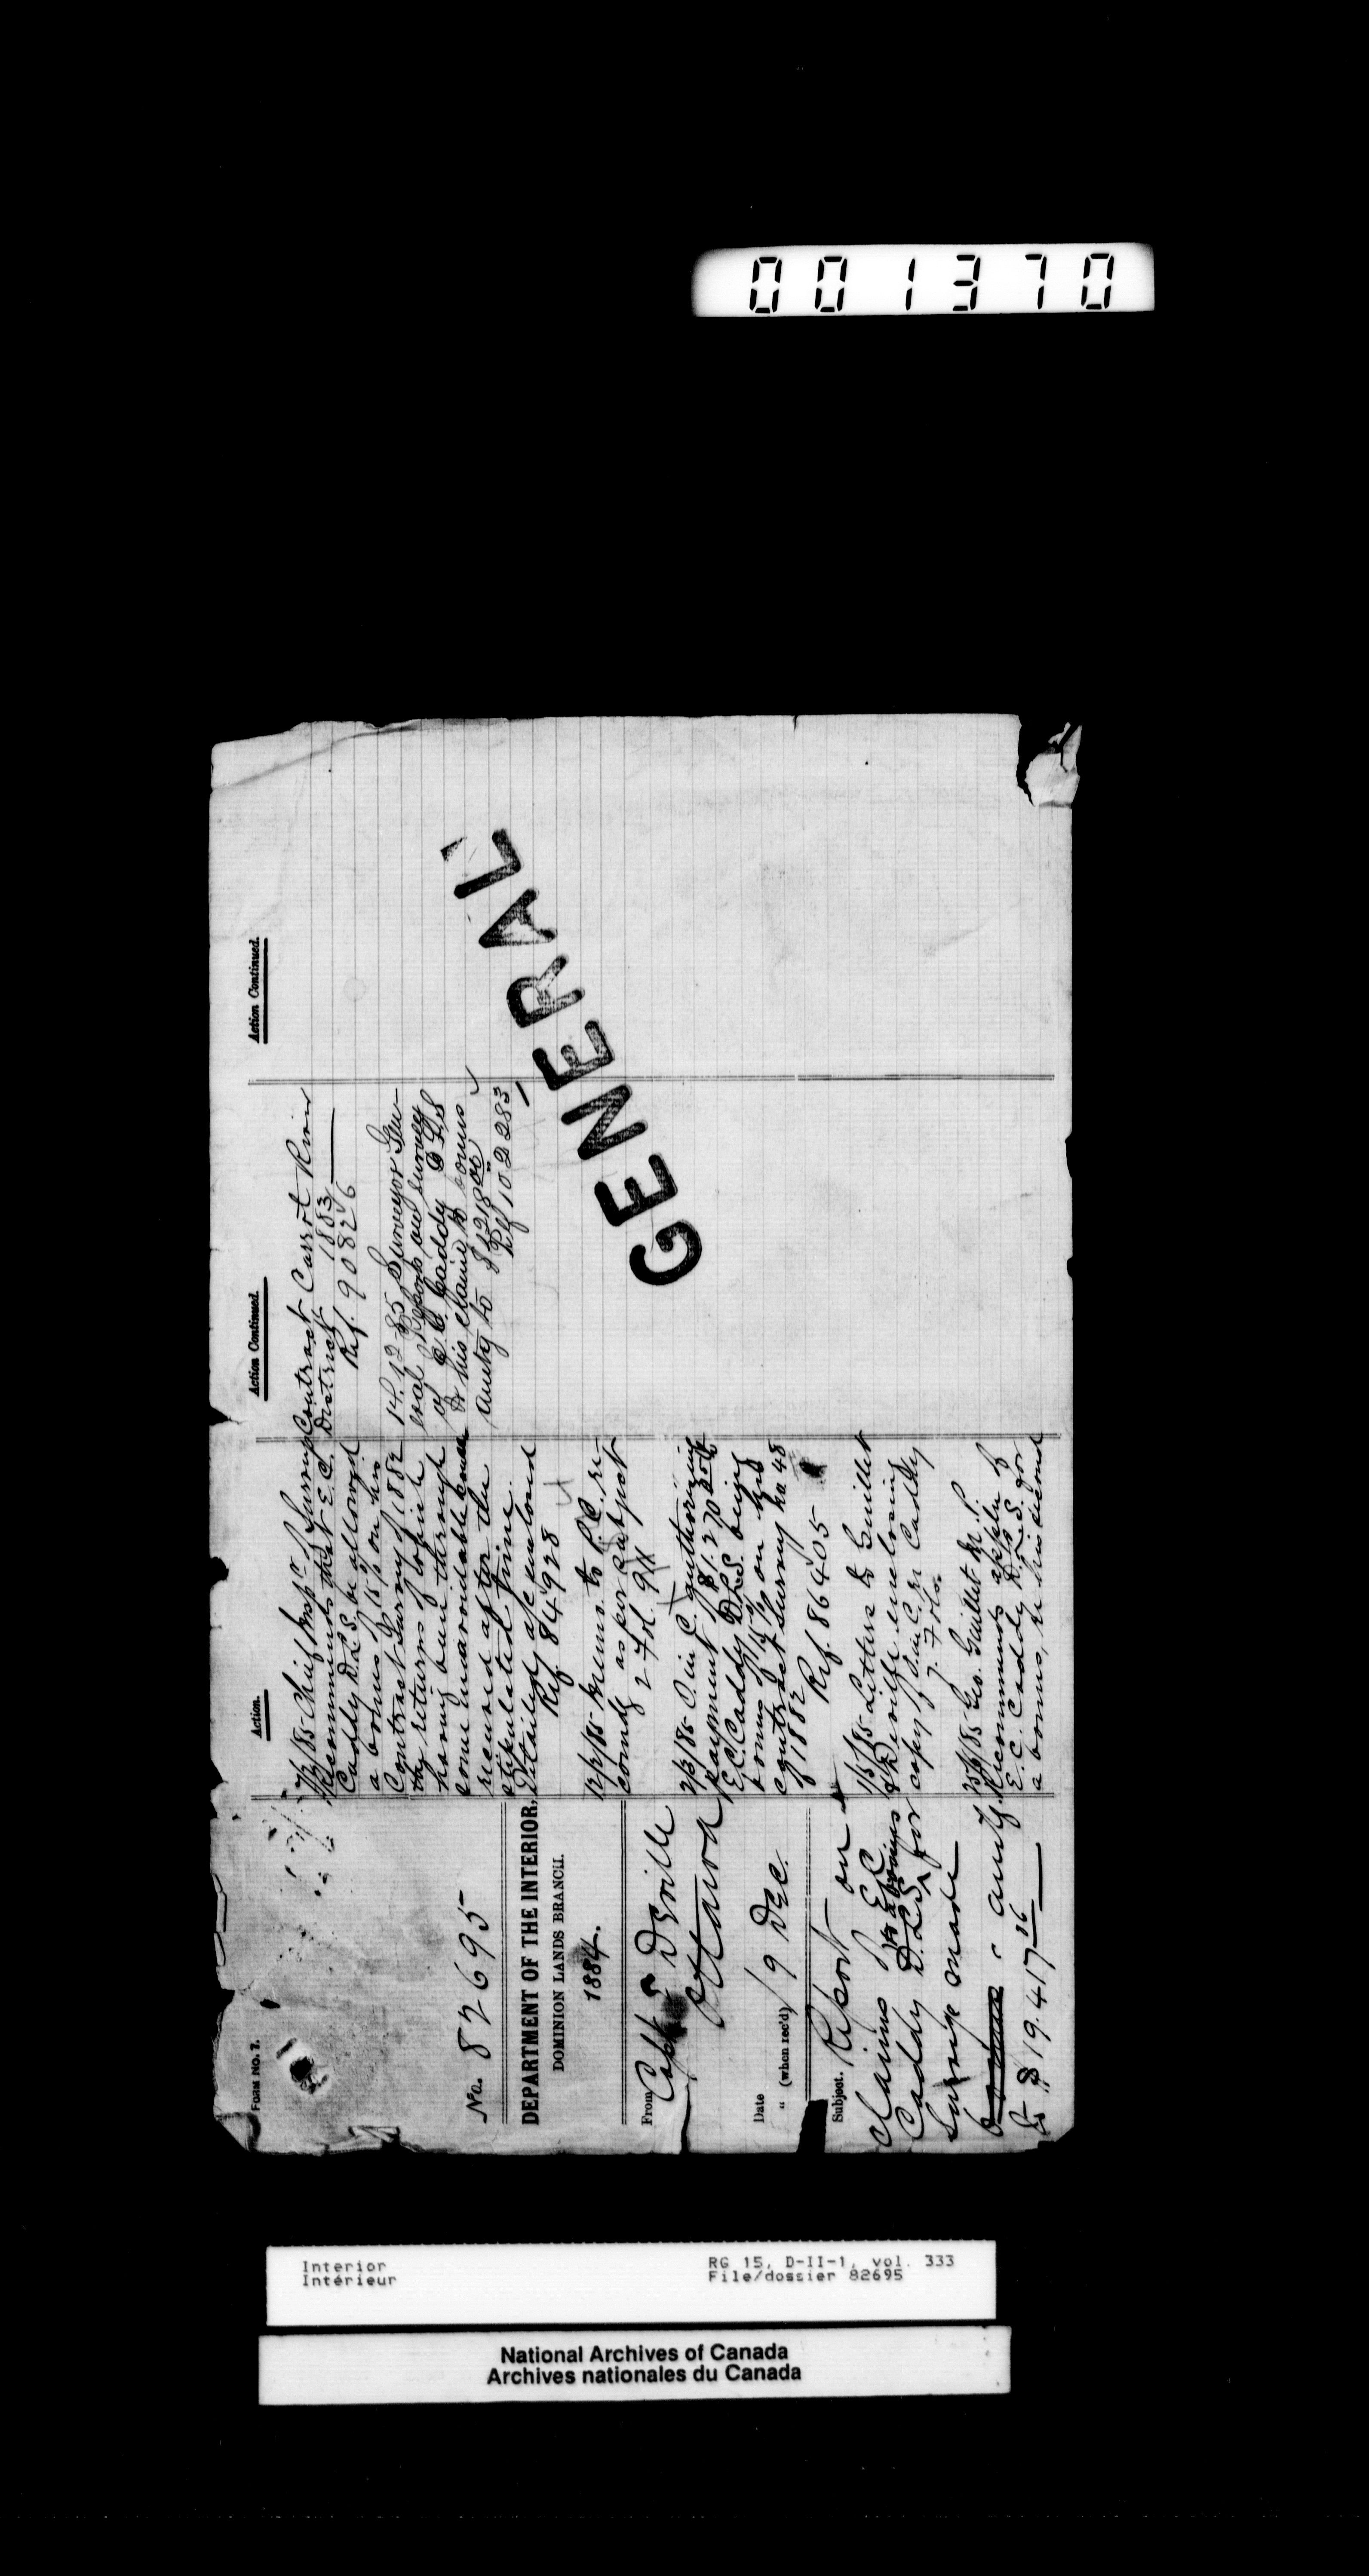 001370
FORM No. 7.
No. 82695
DEPARTMENT OF THE INTERIOR,
DOMINION LANDS BRANCH.
1884.
From Capt Deville
Ottawa
Date
" (when rec'd) 19 Dec.
Subject. Report on
claims of E C
Caddy D.L.S for
to a bonus
survey made
amtg.
to $19.417 16
Action.
Chief Insp of Surveys
Recommends that E. C.
Caddy D.L.S. be allowed
a bonus of 15% on his
Contract Survey of 1882
the returns of which
having been through
some unavoidable cause
received after the
stipulated time.
Detailed a/c enclosed
Ref. 84928
12/2/85 Memo. to P.C. re-
comdg as per subject
2 Fol. 9
2/3/85 O. in C. authorizing
payment of $1.270
E.C. Caddy D.L.S. being
bonus of 15% on his
contract survey No 48
of 1882
Ref. 86405
1/5/85 Letters to Guillet
& Deville enclosing
copy of O. in C. re Caddy
7 Fols.
Geo. Guillet M.P.
Recommends appln of
E. C. Caddy D.L.S. for
a bonus, re his second
Action Continued.
Contract Carrot River
District 1883
Ref. 90826
14.12.85 Surveyor Gen-
eral Reports on survey
of E. C. Caddy D L S
& his claim to bonus
amtg to $1218
Ref 102283
Action Continued.
GENERAL
Interior
Intérieur
RG 15, D-II-1, vol. 333
File/dossier 82695
National Archives of Canada
Archives nationales du Canada